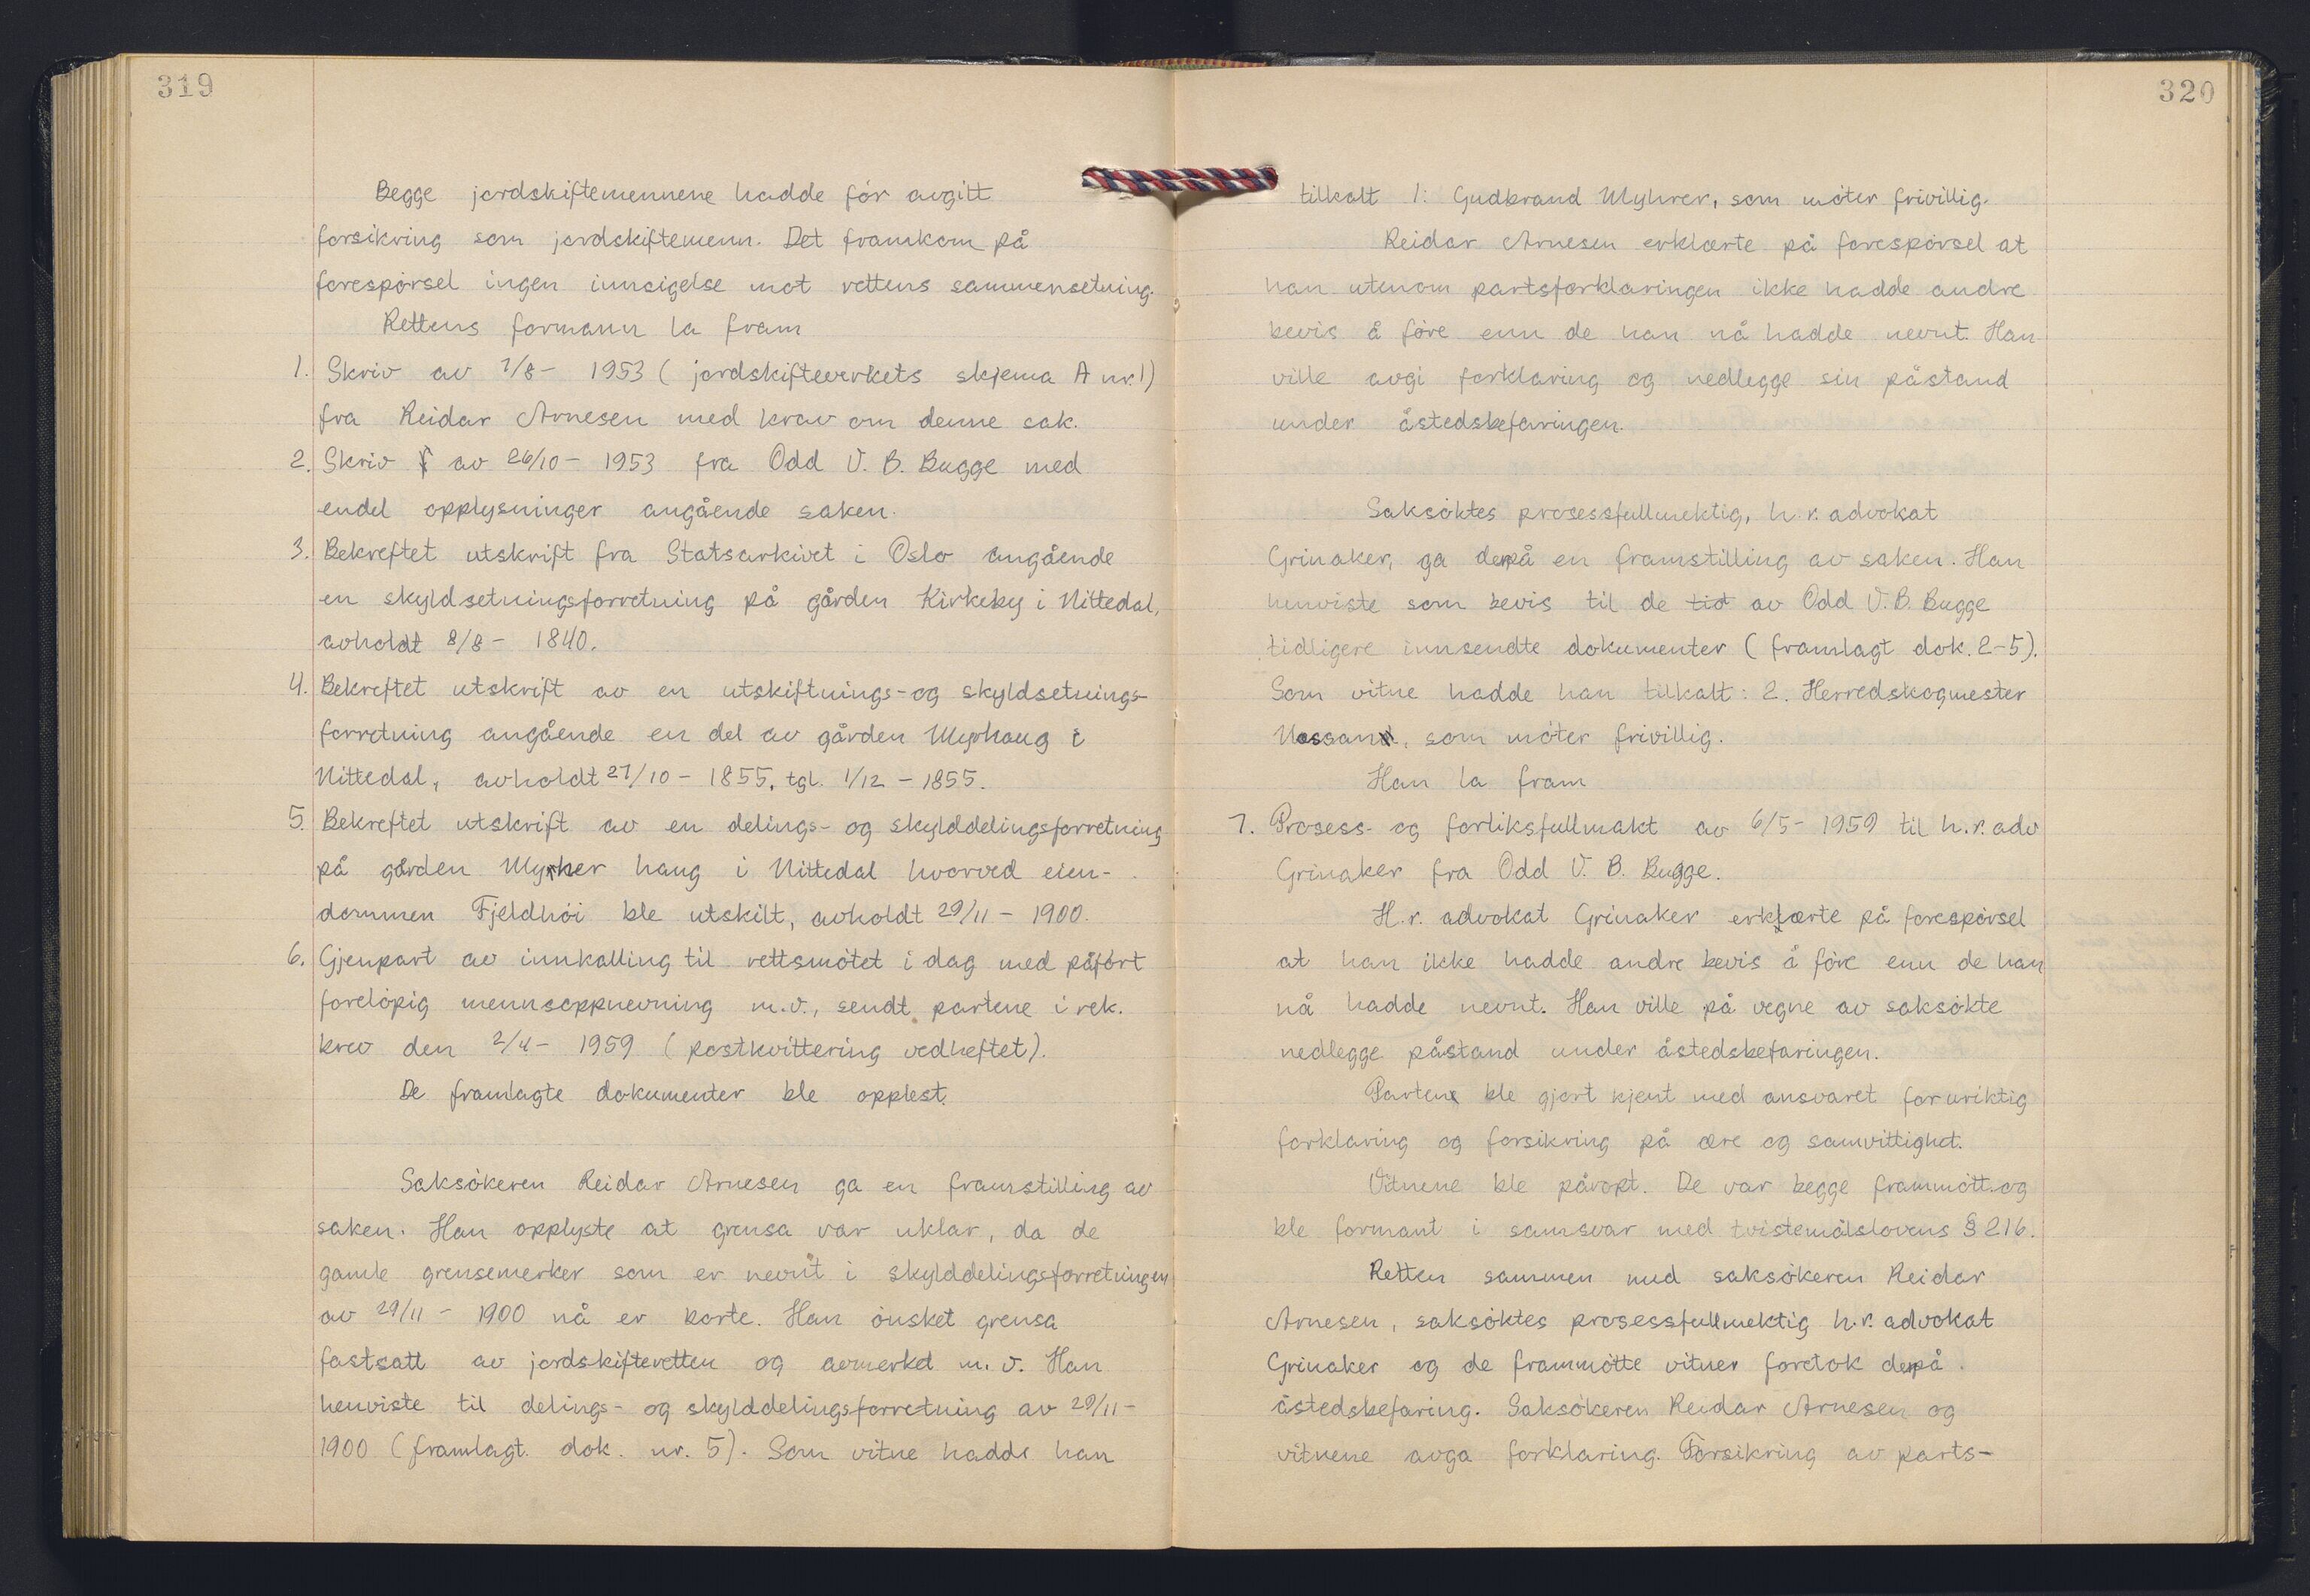 319
Begge jordskiftemennene hadde før avgitt
forsikring som jordskiftemenn. Det framkom på
forespørsel ingen innsigelse mot rettens sammensetning.
Rettens formann la fram
1. Skriv av 7/8- 1953 ( jordskifteverkets skjema A nr. 1)
fra Reidar Arnesen med krav om denne sak.
2. Skriv av 26/10- 1953 fra Odd V. B. Bugge med
endel opplysninger angående saken.
3. Bekreftet utskrift fra Statsarkivet i Oslo angående
en skyldsetningsforretning på gården Kirkeby i Nittedal,
avholdt 8/8- 1840.
4. Bekreftet utskrift av en utskiftnings- og skyldsetnings-
forretning angående en del av gården Myrhaug i
Nittedal, avholdt 27/10 - 1855, tgl. 1/12 - 1855.
5. Bekreftet utskrift av en delings- og skylddelingsforretning
på gården haug i Nittedal hvorved eien-
dommen Fjeldhøi ble utskilt, avholdt 29/11 - 1900.
6. Gjenpart av innkalling til rettsmøtet i dag med påført
foreløpig mennsoppnevning m.v., sendt partene i rek.
brev den 2/4- 1959 ( postkvittering vedheftet).
De framlagte dokumenter ble opplest.
Saksøkeren Reidar Arnesen ga en framstilling av
saken. Han opplyste at grensa var uklar, da de
gamle grensemerker som er nevnt i skylddelingsforretningen
av 29/11 - 1900 nå er borte. Han ønsket grensa
fastsatt av jordskifteretten og avmerket m. v. Han
henviste til delings- og skylddelingsforretning av 29/11-
1900 (framlagt dok. nr. 5). Som vitne hadde han
320
tilkalt 1: Gudbrand Myhrer, som møter frivillig.
Reidar Arnesen erklærte på forespørsel at
han utenom partsforklaringen ikke hadde andre
bevis å føre enn de han nå hadde nevnt. Han
ville avgi forklaring og nedlegge sin påstand
under åstedsbefaringen.
Saksøktes prosessfullmektig, h. r. advokat
Grinaker, ga derpå en framstilling av saken. Han
henviste som bevis til de tid av Odd V. B. Bugge
tidligere innsendte dokumenter ( framlagt dok. 2-5).
Som vitne hadde han tilkalt: 2. Herredskogmester
som møter frivillig.
Han la fram
7. Prosess- og forliksfullmakt av 6/5- 1959 til h. r. adv
Grinaker fra Odd V. B. Bugge.
H. r. advokat Grinaker erklærte på forespørsel
at han ikke hadde andre bevis å føre enn de han
nå hadde nevnt. Han ville på vegne av saksøkte
nedlegge påstand under åstedsbefaringen.
Partene ble gjort kjent med ansvaret for uriktig
forklaring og forsikring på ære og samvittighet.
Vitnene ble påropt. De var begge frammøtt og
ble formant i samsvar med tvistemålslovens § 216.
Retten sammen med saksøkeren Reidar
Arnesen, saksøktes prosessfullmektig h. r. advokat
Grinaker og de frammøtte vitner foretok derpå
åstedsbefaring. Saksøkeren Reidar Arnesen og
vitnene avga forklaring. Forsikring av parts-